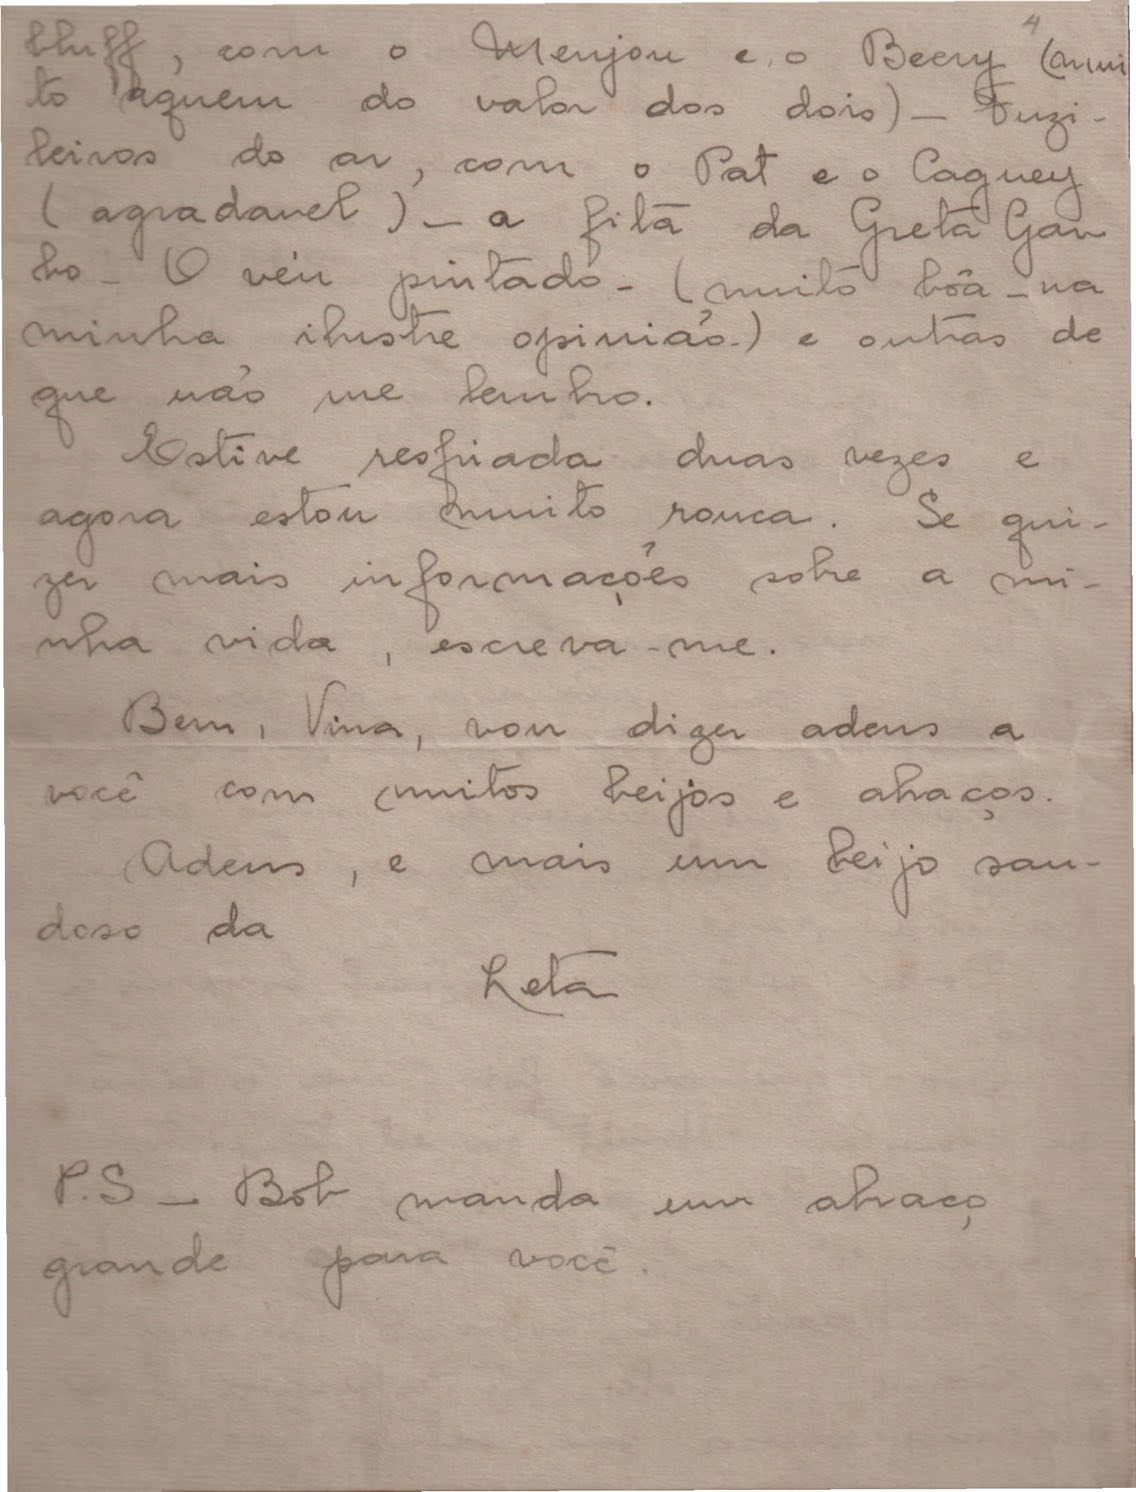 4
bluff, com o Menjou e o Beery (mui
to aquem do valor dos dois) — Fuzi-
leiros do ar, com o Pat e o Cagney
(agradavel) — a fita da Greta Gar
bo — O véu pintado — (muito bôa — na
minha ilustre opinião.) e outras de
que não me lembro.
Estive resfriada duas vezes e
agora estou muito rouca. Se qui-
zer mais informações sobre a mi-
nha vida, escreva-me.
Bem, Vina, vou dizer adeus a
você com muitos beijos e abraços.
Adeus, e mais um beijo sau-
doso da
Leta
P.S — Bob manda um abraço
grande para você.